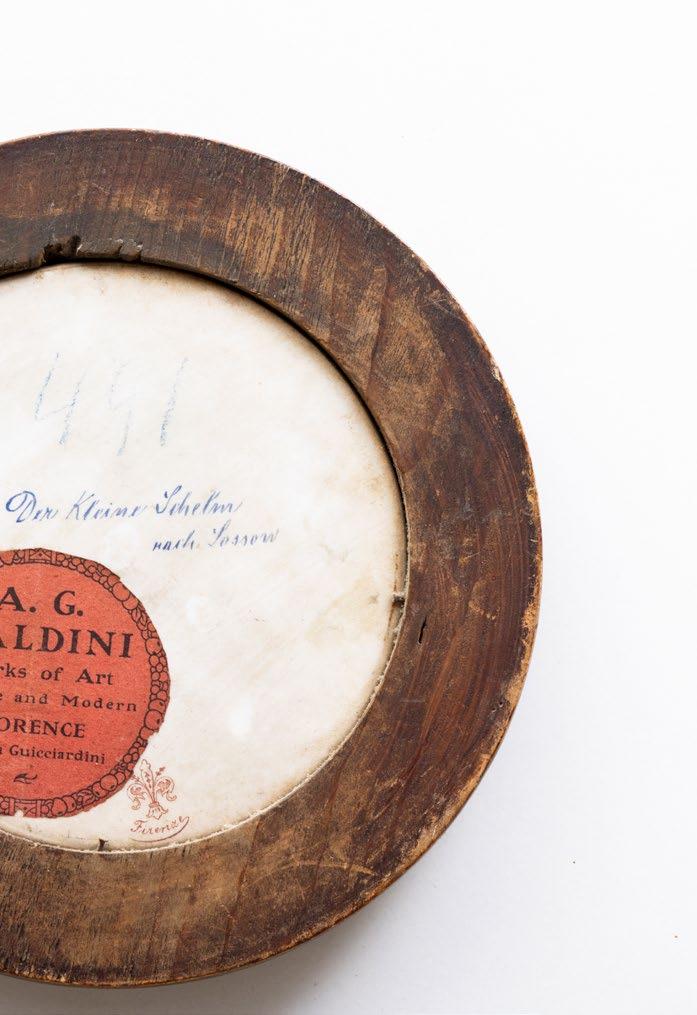 491
Der Kleine Schelm
nach Lossow
A. G.
ALDINI
rks of Art
e and Modern
ORENCE
a Guicciardini
Firenze